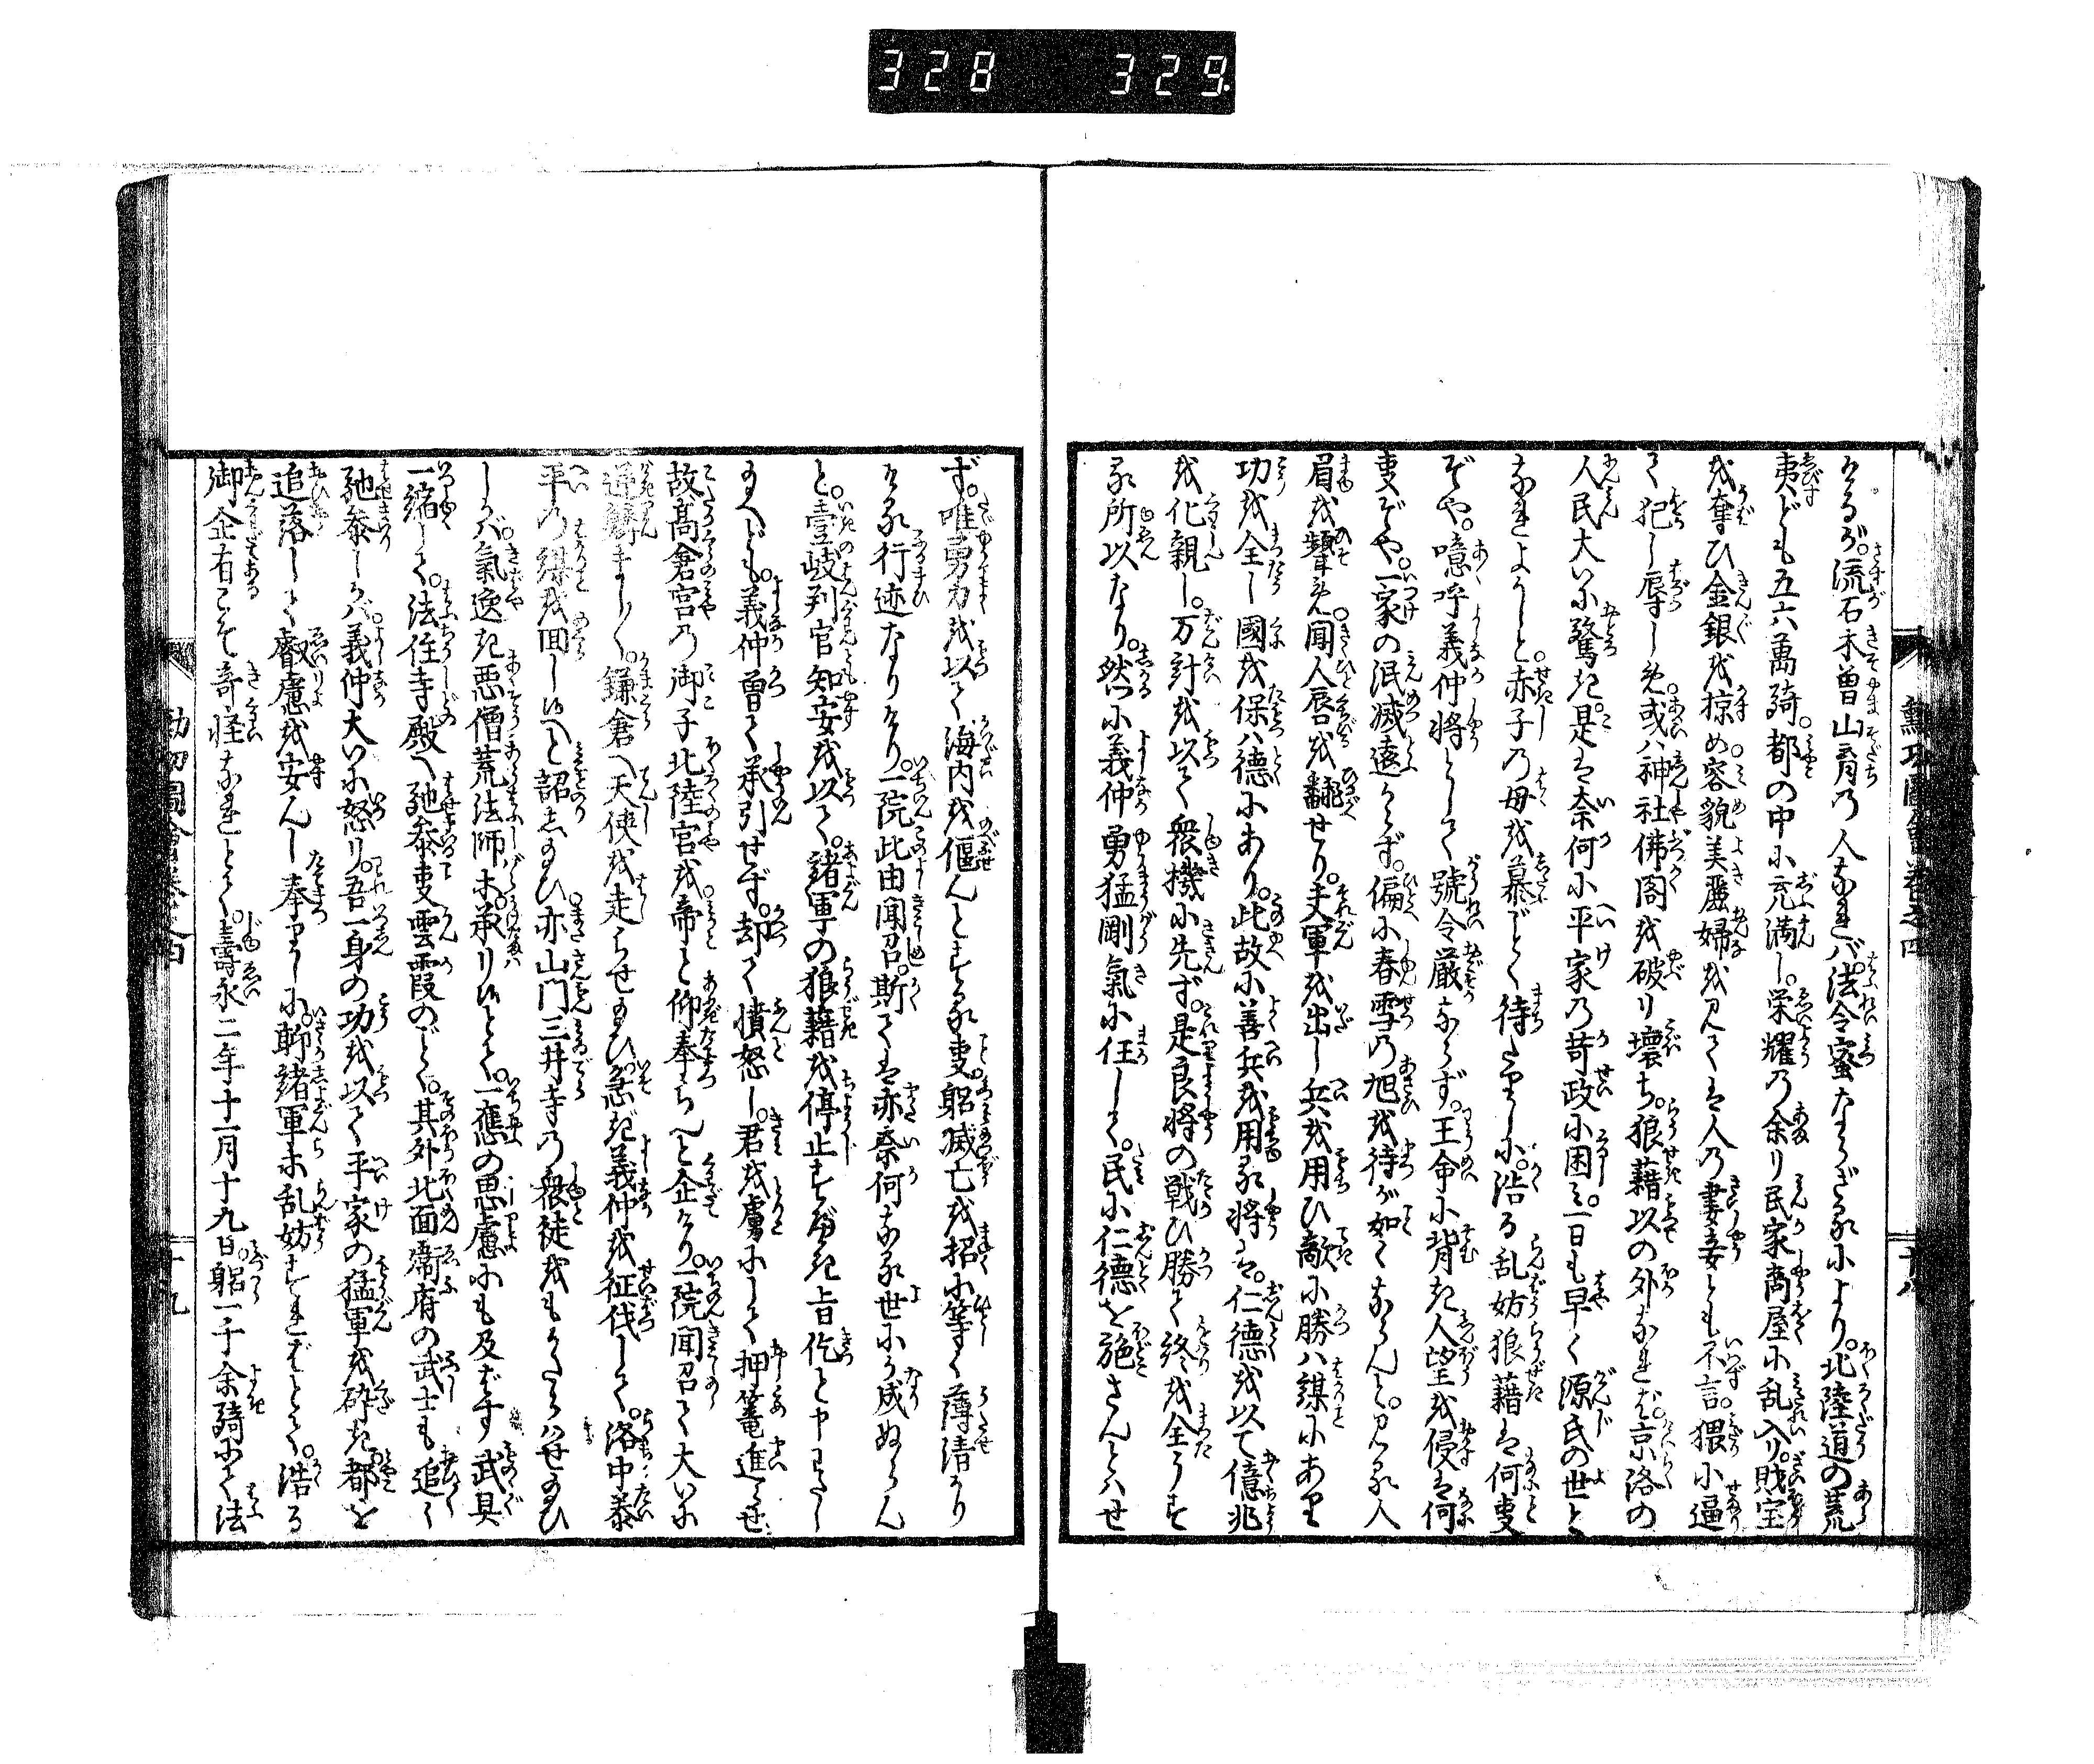 328 329
勲功圖會卷之四
十八
ける が。流石木曽山育の人なれバ。法令蜜ならざるにより。北陸道の荒
夷ども五六萬騎。都の中に充満し。栄耀の余り民家商屋に乱入り。財宝
を奪ひ金銀を掠め。容貌美麗婦を見ては人の妻妾とも不言。猥に逼
て犯し辱しめ。或ハ神社佛閣を破り壊ち。狼藉以の外なれば。京洛の
人民大いに驚き。是は奈何に平家の苛政に困ミ。一日も早く源氏の世と
なれよかしと。赤子の母を慕ごとく待たりしに。浩る乱妨狼藉は何叓
ぞや。噫呼義仲将として號令厳ならず。王命に背き人望を侵は何
叓ぞや。一家の泯滅遠からず。偏に春雪の旭を待が如くならんと。見る人
眉を顰め。聞人唇を翻せり。夫軍を出し兵を用ひ敵に勝ハ謀にあり
功を全し國を保ハ徳にあり。此故に善兵を用る将は。仁徳を以て億兆
を化親し。万計を以て衆機に先ず。是良将の戦ひ勝て終を全うす
る所以なり。然に義仲勇猛剛氣に任して。民に仁徳を施さんとハせ
ず。唯勇力を以て海内を偃んとする叓。躬滅亡を招に等く薄情かり
ける行迹なりけり。一院此由聞召。斯ては亦奈何なる世にか成ぬらん
と。壹岐判官知安を以て。諸軍の狼藉を停止すべき旨仡と申わたし
給へども。義仲曽て承引せず。却て憤怒し。君を虜にして押篭進らせ。
故髙倉宮の御子北陸宮を。帝と仰奉らんと企けり。一院聞召て大いに
逆鱗ましまし〳〵。鎌倉へ天使を走らせ給ひ。急ぎ義仲を征伐して。洛中泰
平の謀を回し候へと詔し給ひ。亦山門三井寺の衆徒をもかたらハせ給ひ
しかバ。氣逸き悪僧荒法師ホ。承り候とて。一應の思慮にも及ばず武具
一縮して。法住寺殿へ馳参叓雲霞のごとく。其外北面衛府の武士も追々
馳参しかバ。義仲大いに怒り。吾一身の功を以て平家の猛軍を砕き。都を
追落して叡慮を安んし奉りしに。聊諸軍ホ乱妨すればとて。浩る
御企有こそ奇怪なれとて。壽永二年十一月十九日。躬一千余騎にて法
勲功圖會卷之四
十九